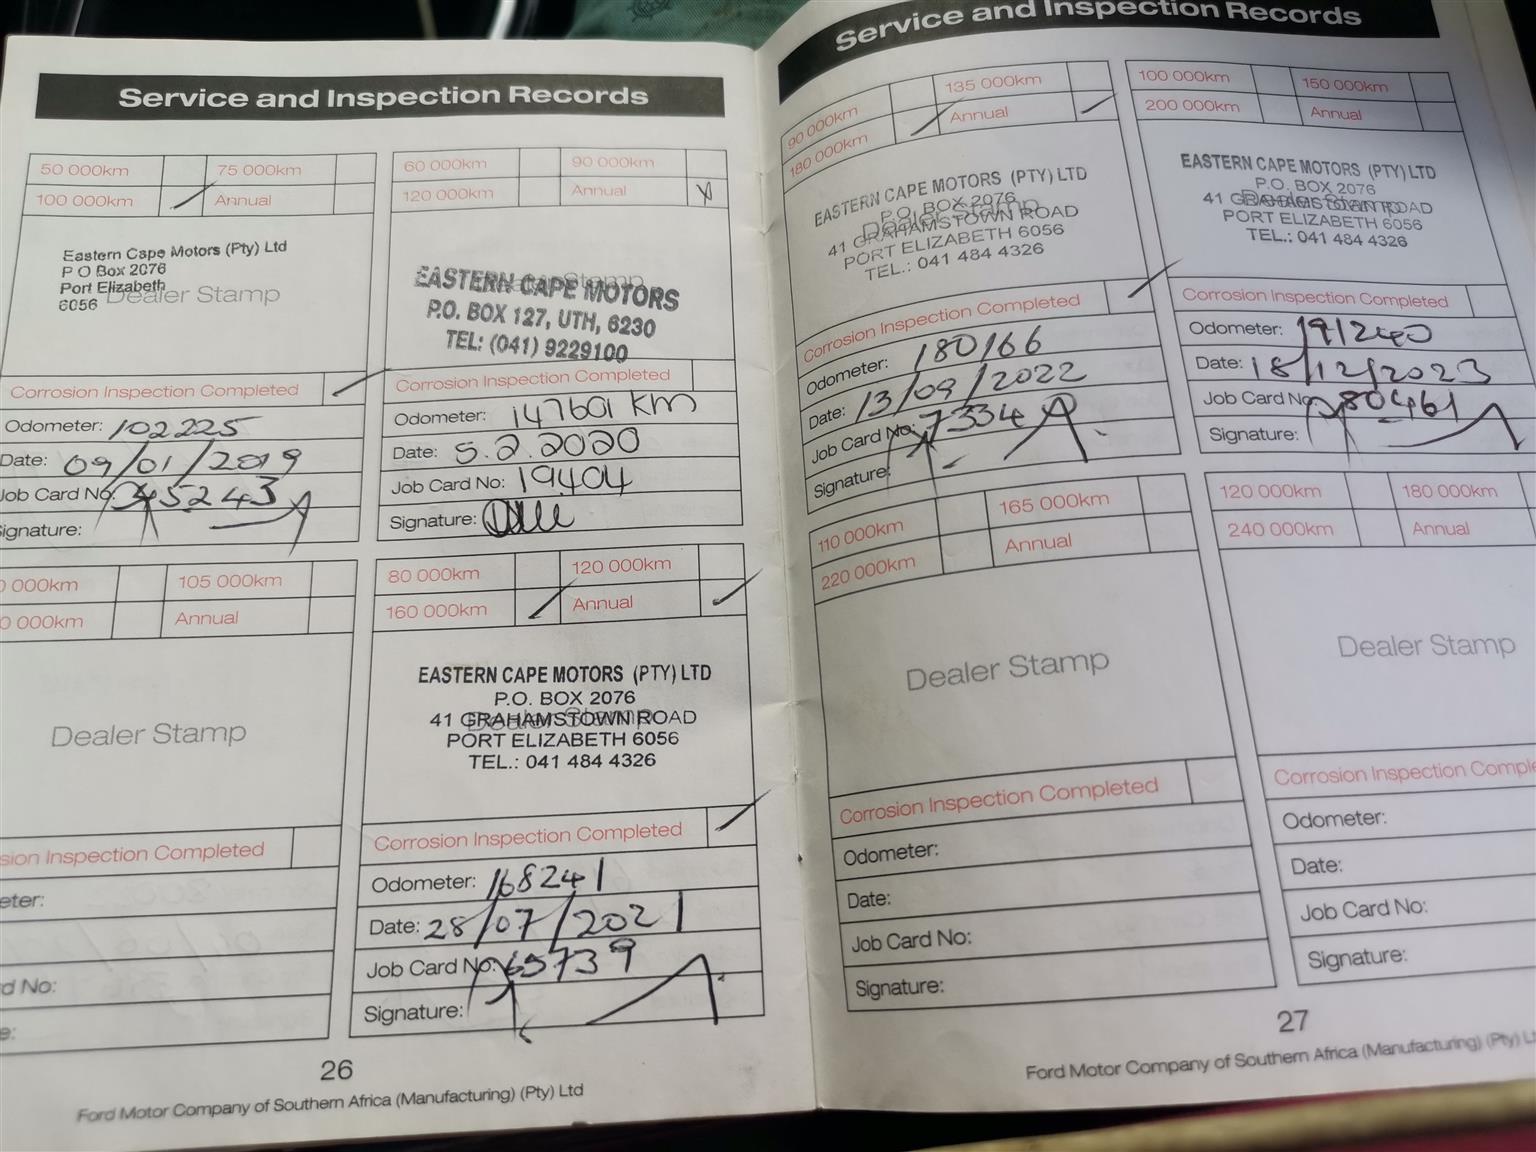 Service and Inspection Records
50 000km 75 000km
100 000km Annual
Eastern Cape Motors (Pty) Ltd
P O Box 2076
Port Elizabeth
6056 Dealer Stamp
Corrosion Inspection Completed
Odometer: 102225
Date: 09/01/2019
Job Card No: 45243
Signature:
60 000km 90 000km
120 000km Annual X
Dealer Stamp
EASTERN CAPE MOTORS
P.O. BOX 127, UTH, 6230
TEL: (041) 9229100
Corrosion Inspection Completed
Odometer: 147601 KM
Date: 5.2.2020
Job Card No: 19404
Signature:
0 000km 105 000km
0 000km Annual
Dealer Stamp
sion Inspection Completed
eter:
d No:
e:
80 000km 120 000km
160 000km Annual
EASTERN CAPE MOTORS (PTY) LTD
P.O. BOX 2076
Dealer Stamp
41 GRAHAMSTOWN ROAD
PORT ELIZABETH 6056
TEL.: 041 484 4326
Corrosion Inspection Completed
Odometer: 168241
Date: 28/07/2021
Job Card No: 65739
Signature:
26
Ford Motor Company of Southern Africa (Manufacturing) (Pty) Ltd
Service and Inspection Records
90 000km 135 000km
180 000km Annual
EASTERN CAPE MOTORS (PTY) LTD
P.O. BOX 2076
Dealer Stamp
41 GRAHAMSTOWN ROAD
PORT ELIZABETH 6056
TEL.: 041 484 4326
Corrosion Inspection Completed
Odometer: 180166
Date: 13/09/2022
Job Card No: 7334
Signature:
100 000km 150 000km
200 000km Annual
EASTERN CAPE MOTORS (PTY) LTD
P.O. BOX 2076
Dealer Stamp
41 GRAHAMSTOWN ROAD
PORT ELIZABETH 6056
TEL.: 041 484 4326
Corrosion Inspection Completed
Odometer: 191240
Date: 18/12/2023
Job Card No: 80461
Signature:
110 000km 165 000km
220 000km Annual
Dealer Stamp
Corrosion Inspection Completed
Odometer:
Date:
Job Card No:
Signature:
120 000km 180 000km
240 000km Annual
Dealer Stamp
Corrosion Inspection Comple
Odometer:
Date:
Job Card No:
Signature:
27
Ford Motor Company of Southern Africa (Manufacturing) (Pty) Lt